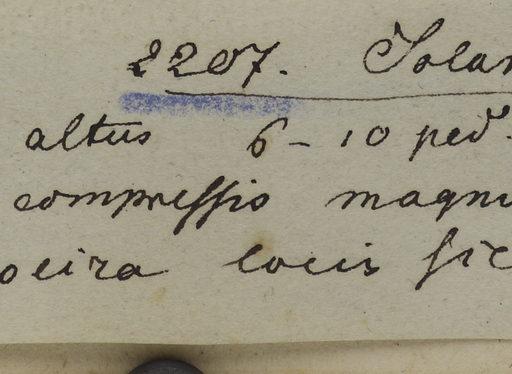 2207. Solan
altus 6-10 ped.
compressis magni
oeira locis sic